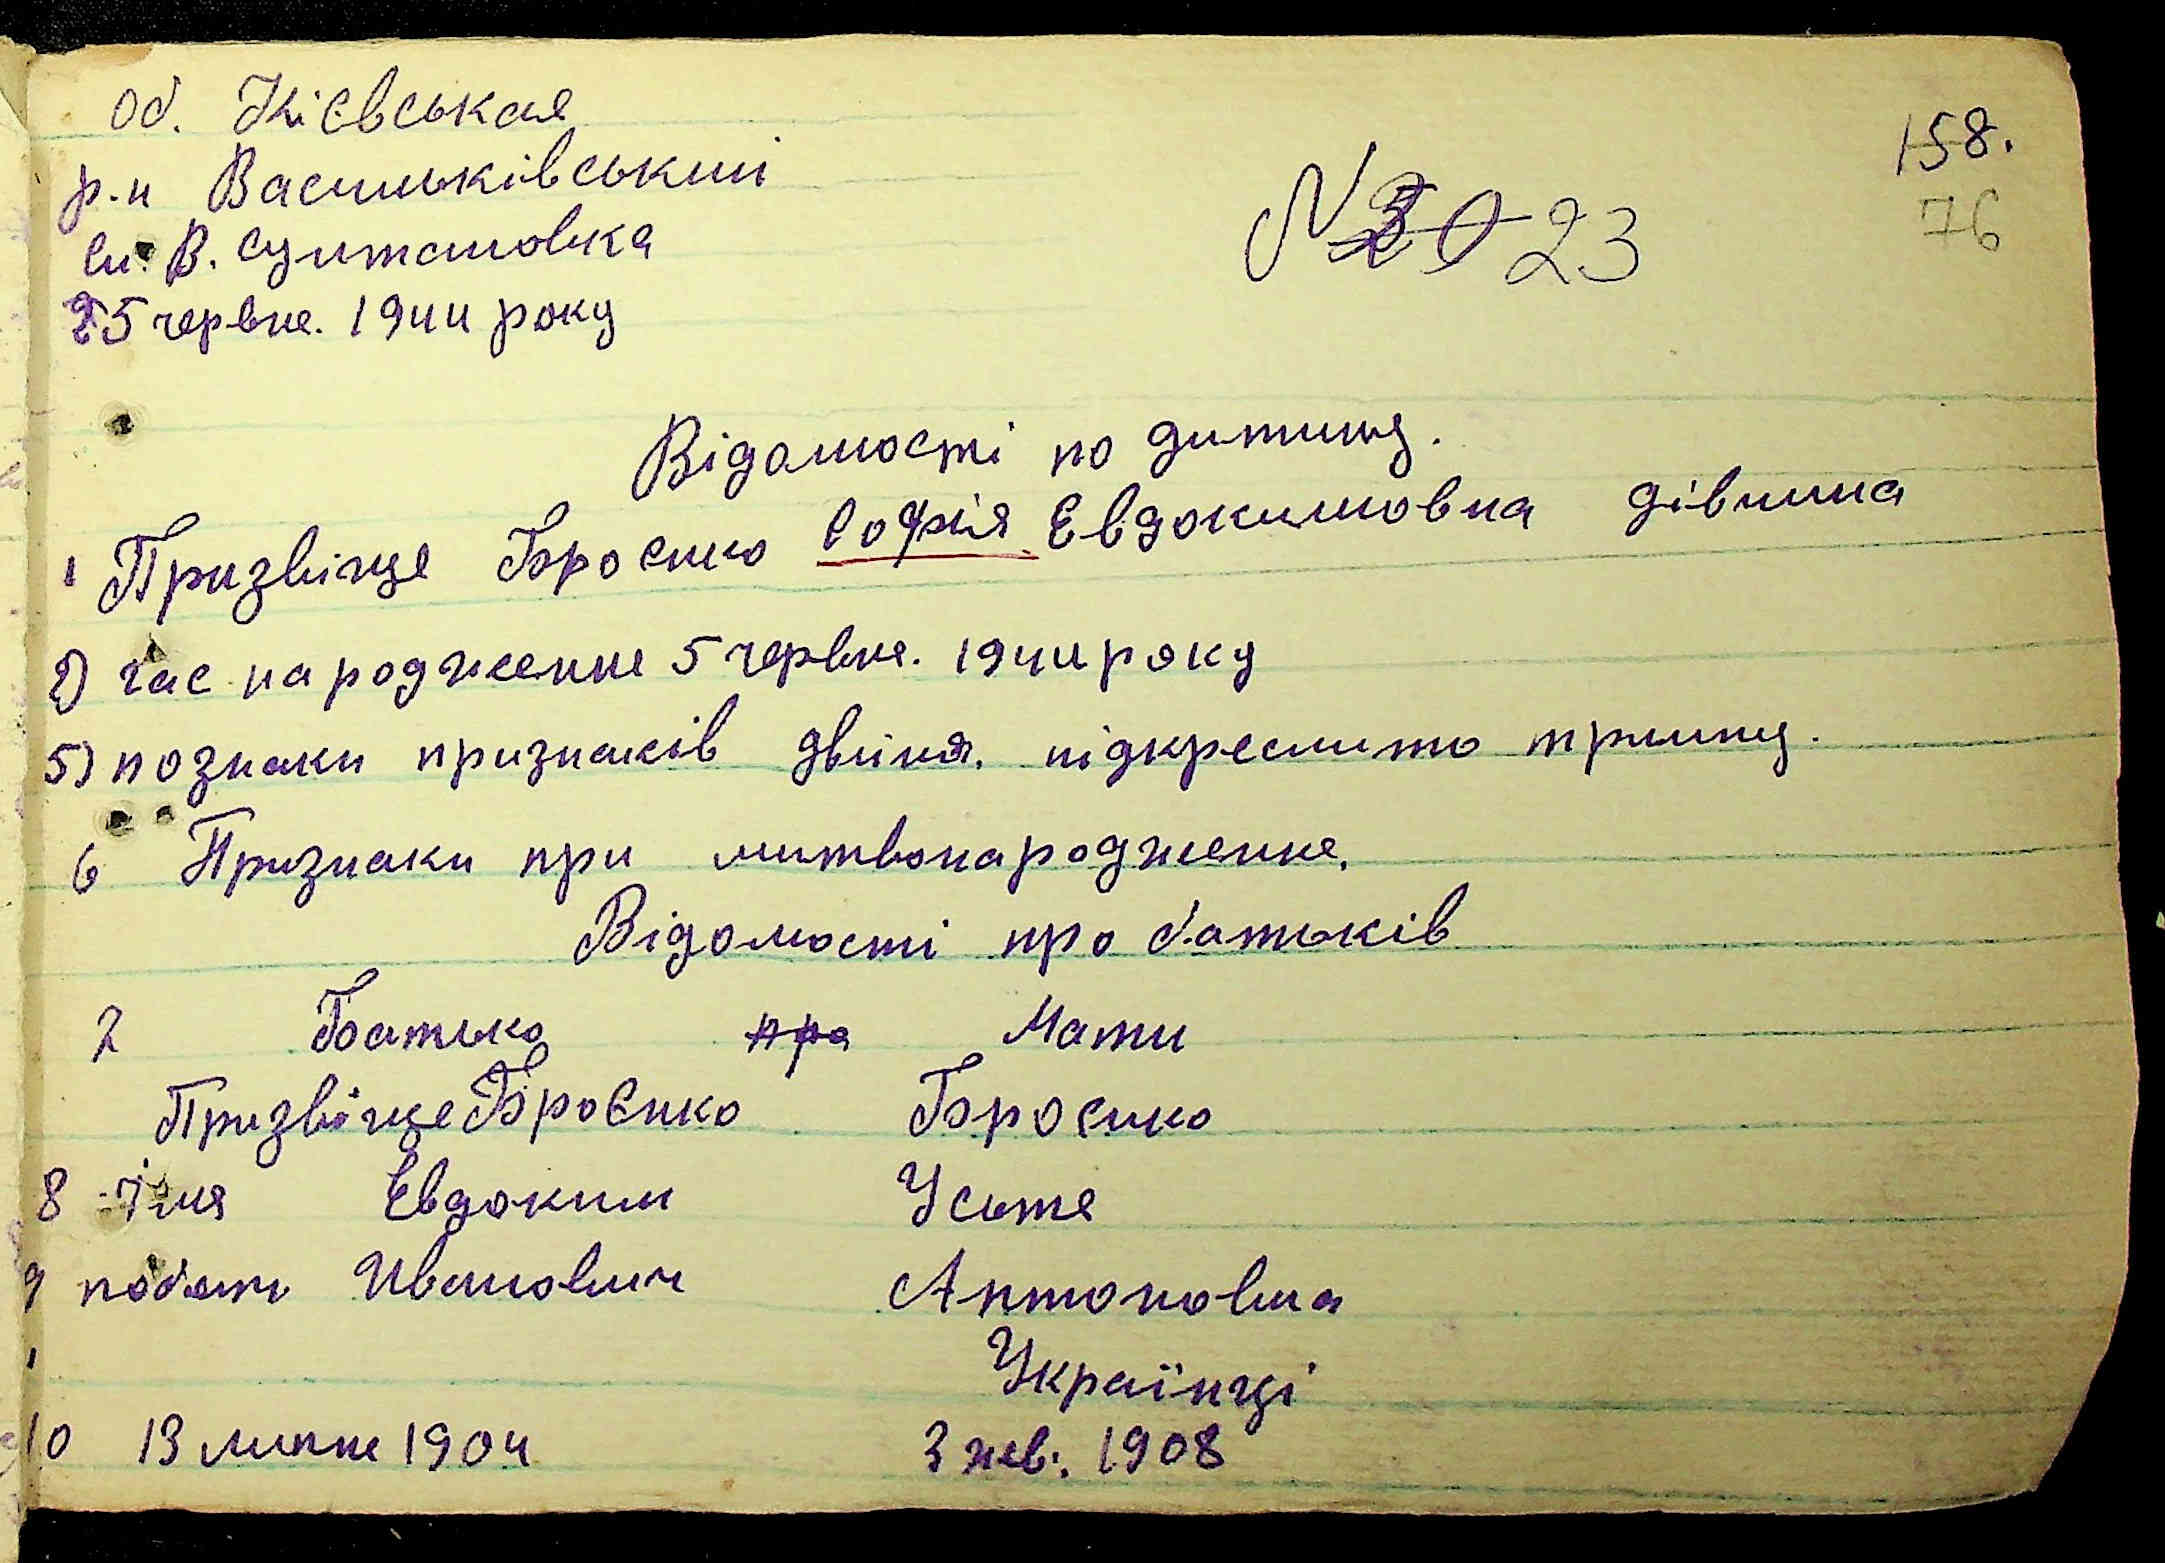 об. Кіевськая
158.
р.н Васильківський
№ 30 23
76
сл. В. Султановка
25 червне. 1944 року
Відомості по дитину.
1 Призвіще Броенко Софія Евдокимовна дівчина
2) час народженне 5 червне. 1944 року
5) познаки признаків двіня. підкреслито трийну.
6 Признаки при митвонародженне.
Відомості про батьків
7 Батько про Мати
Призвіще Броенко Броенко
8 Імя Евдоким Усьте
9 побати Иванович Антоновна
Українці
10 13 липне 1904 3 жев. 1908